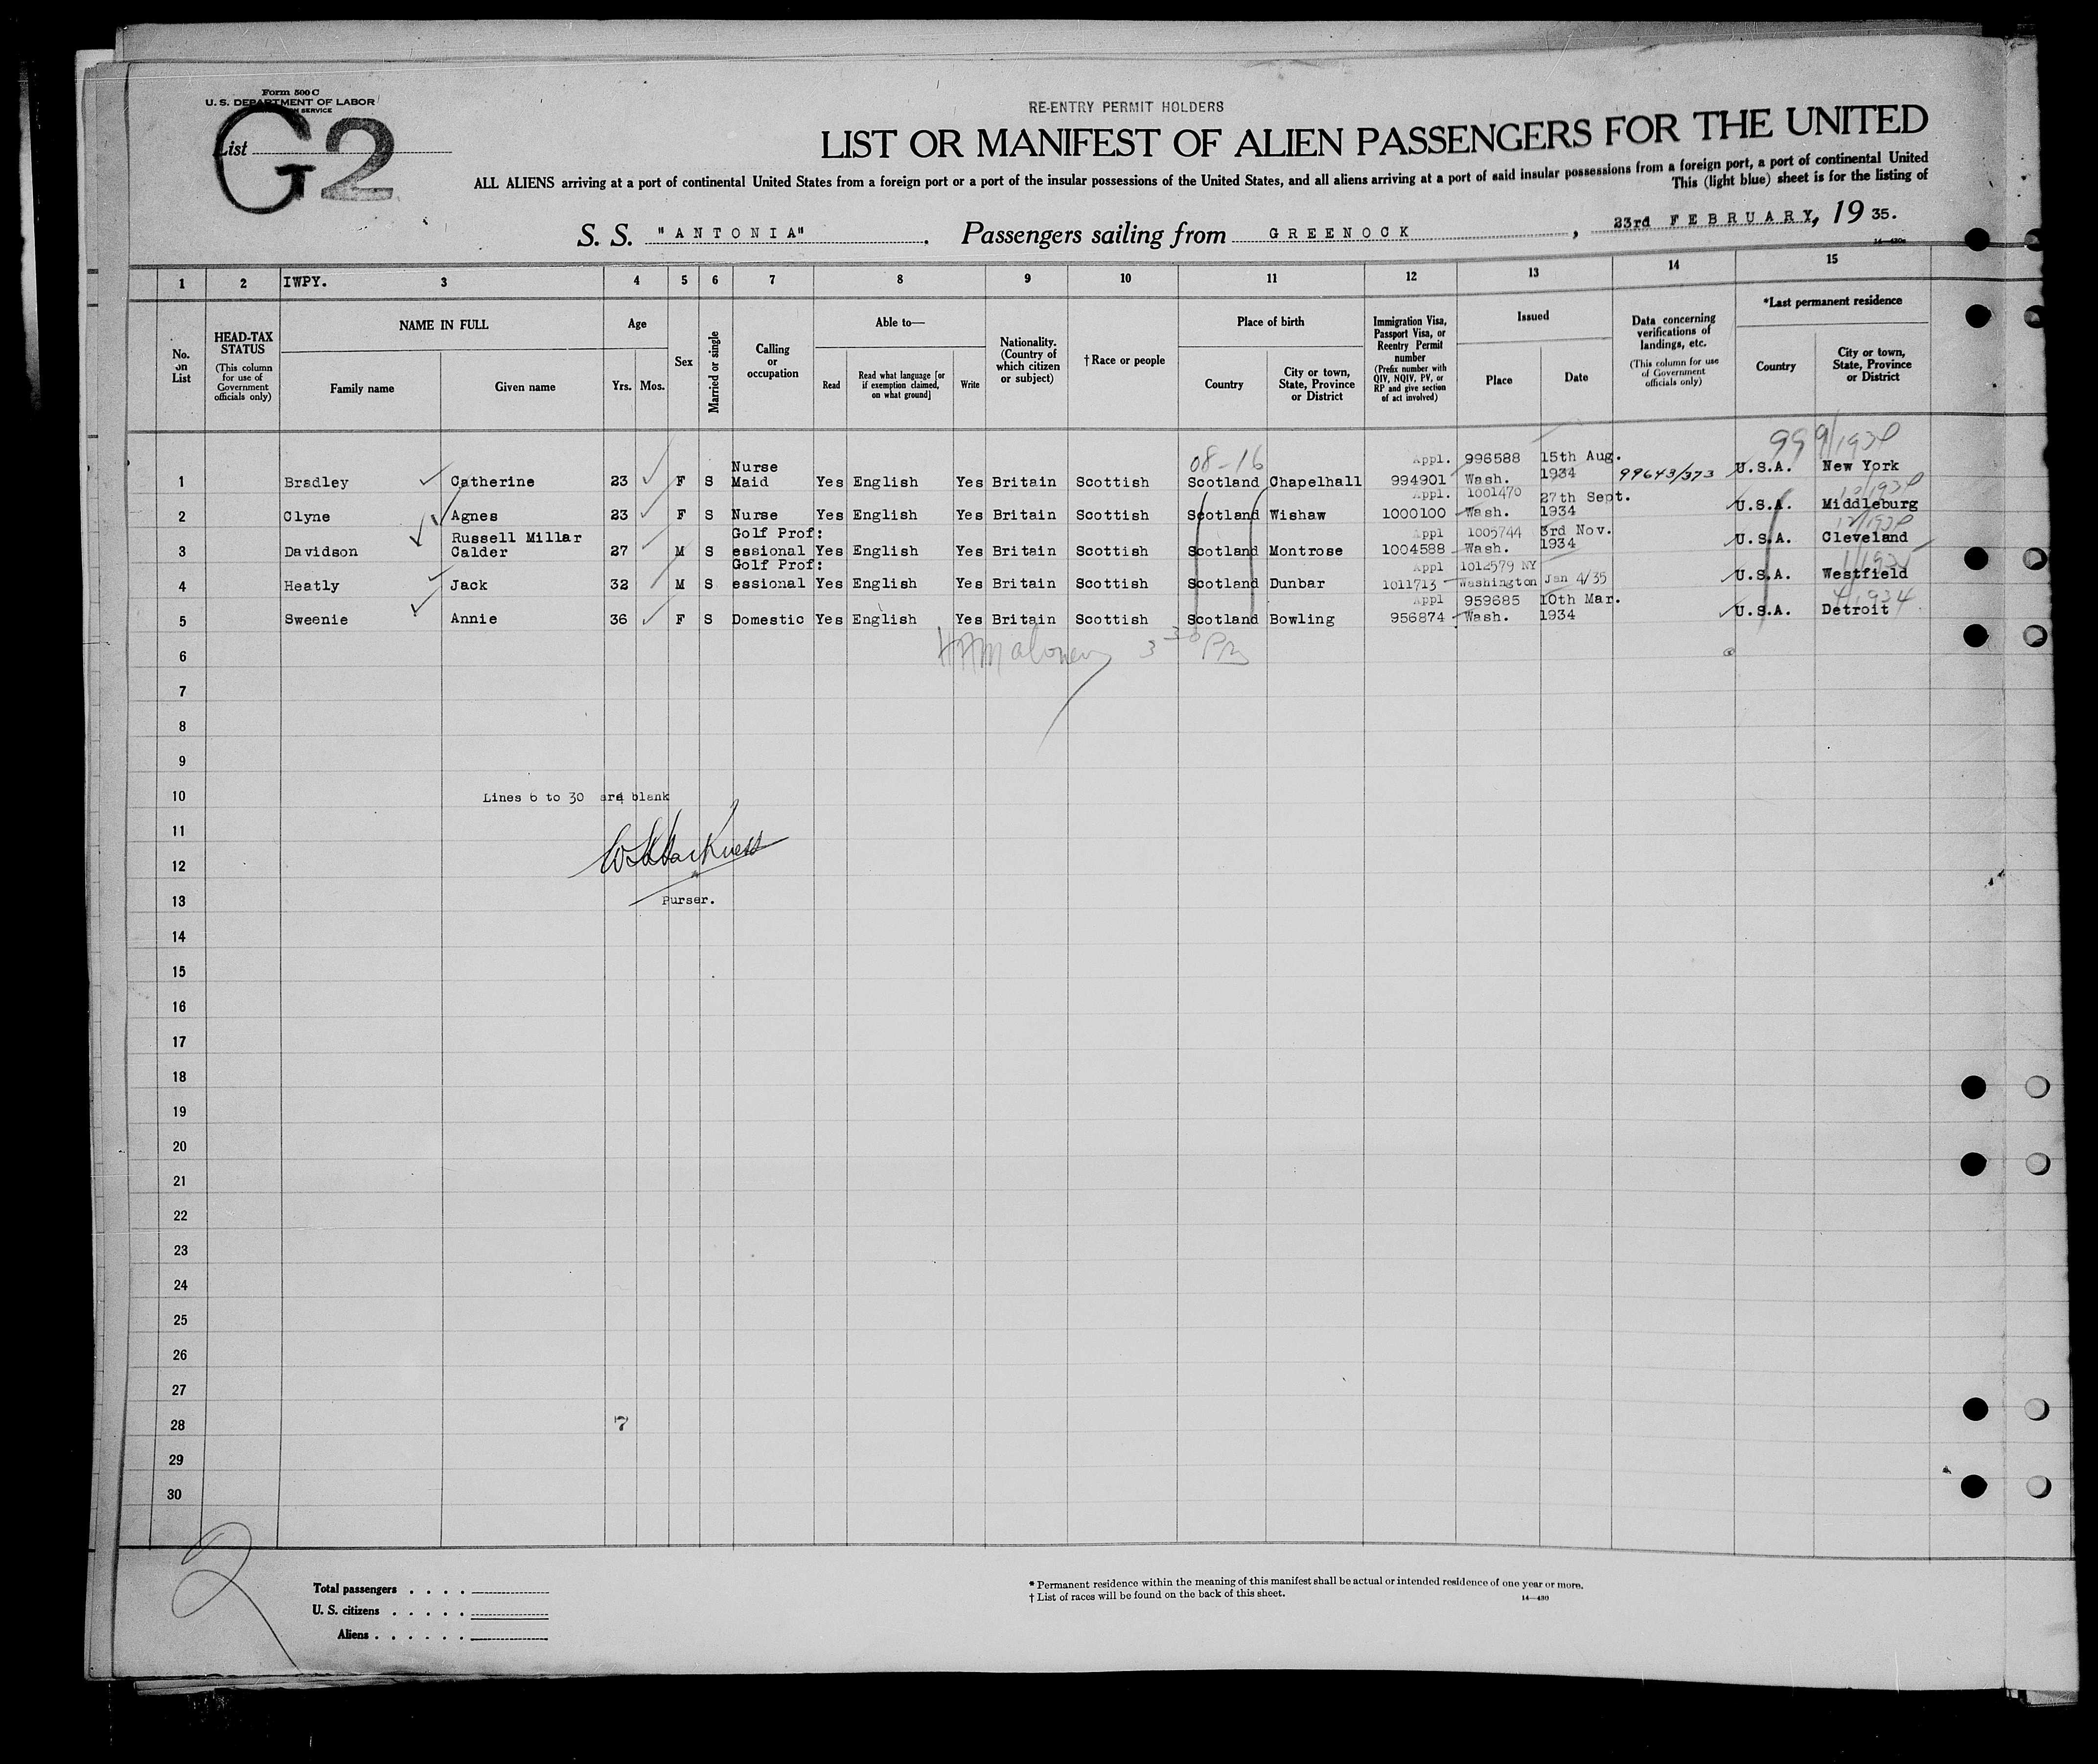 Form 500 C
U. S. DEPARTMENT OF LABOR
SERVICE
List G2
RE-ENTRY PERMIT HOLDERS
LIST OR MANIFEST OF ALIEN PASSENGERS FOR THE UNITED
ALL ALIENS arriving at a port of continental United States from a foreign port or a port of the insular possessions of the United States, and all aliens arriving at a port of said insular possessions from a foreign port, a port of continental United
This (light blue) sheet is for the listing of
S. S. "ANTONIA". Passengers sailing from GREENOCK, 23rd FEBRUARY, 19 35.
14—430c
1 2 IWPY. 3 4 5 6 7 8 9 10 11 12 13 14 15
No. on List
HEAD-TAX STATUS (This column for use of Government officials only)
NAME IN FULL
Family name Given name
Age
Yrs. Mos.
Sex
Married or single
Calling or occupation
Able to—
Read Read what language [or if exemption claimed, on what ground] Write
Nationality. (Country of which citizen or subject)
†Race or people
Place of birth
Country City or town, State, Province or District
Immigration Visa, Passport Visa, or Reentry Permit number (Prefix number with QIV, NQIV, PV, or RP and give section of act involved)
Issued
Place Date
Data concerning verifications of landings, etc. (This column for use of Government officials only)
*Last permanent residence
Country City or town, State, Province or District
08-16 999/1934
Nurse Appl. 996588 15th Aug.
1 Bradley Catherine 23 F S Maid Yes English Yes Britain Scottish Scotland Chapelhall 994901 Wash. 1934 99643/373 U.S.A. New York
Appl. 1001470 27th Sept. 10/1934
2 Clyne Agnes 23 F S Nurse Yes English Yes Britain Scottish Scotland Wishaw 1000100 Wash. 1934 U.S.A. Middleburg
Russell Millar Golf Prof: Appl 1005744 3rd Nov. 12/1934
3 Davidson Calder 27 M S essional Yes English Yes Britain Scottish Scotland Montrose 1004588 Wash. 1934 U.S.A. Cleveland
Golf Prof: Appl 1012579 NY 1/1935
4 Heatly Jack 32 M S essional Yes English Yes Britain Scottish Scotland Dunbar 1011713 Washington Jan 4/35 U.S.A. Westfield
Appl 959685 10th Mar. 4/1934
5 Sweenie Annie 36 F S Domestic Yes English Yes Britain Scottish Scotland Bowling 956874 Wash. 1934 U.S.A. Detroit
6 Maloney 3 30 PM
7
8
9
10 Lines 6 to 30 are blank
11
12
13 Purser.
14
15
16
17
18
19
20
21
22
23
24
25
26
27
28 7
29
30
2
Total passengers . . . .
U. S. citizens . . . . .
Aliens . . . . . .
* Permanent residence within the meaning of this manifest shall be actual or intended residence of one year or more.
† List of races will be found on the back of this sheet.
14—430